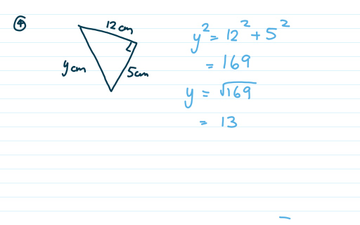 ④
12 cm
y cm
5 cm
y² = 12² + 5²
= 169
y = √169
= 13